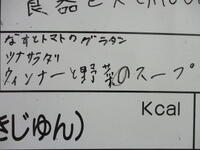 なすとトマトのグラタン
ツナサラダ
ウィンナーと野菜のスープ
Kcal
きじゅん)